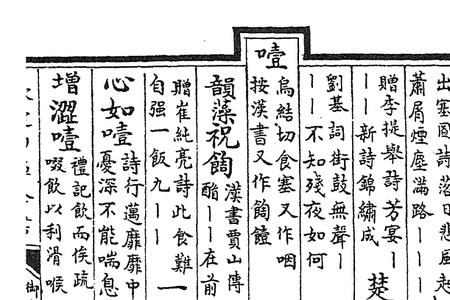 出塞圖詩落日悲風起
蕭屑煙塵滿路丨丨
贈李提舉詩芳宴丨
丨丨新詩錦繡成
劉基詞街鼓無聲丨
丨丨不如殘夜如何
噎
烏結切食塞又作咽
按漢書又作䭇饐
韻藻祝䭇
漢書賈山傳
酳丨丨在前
贈崔純亮詩此食難
自强一飯九丨丨
一
心如噎
詩行邁靡靡中
憂深不能喘息
增
澀噎
禮記飲而俟疏
啜飲以利滑喉
御